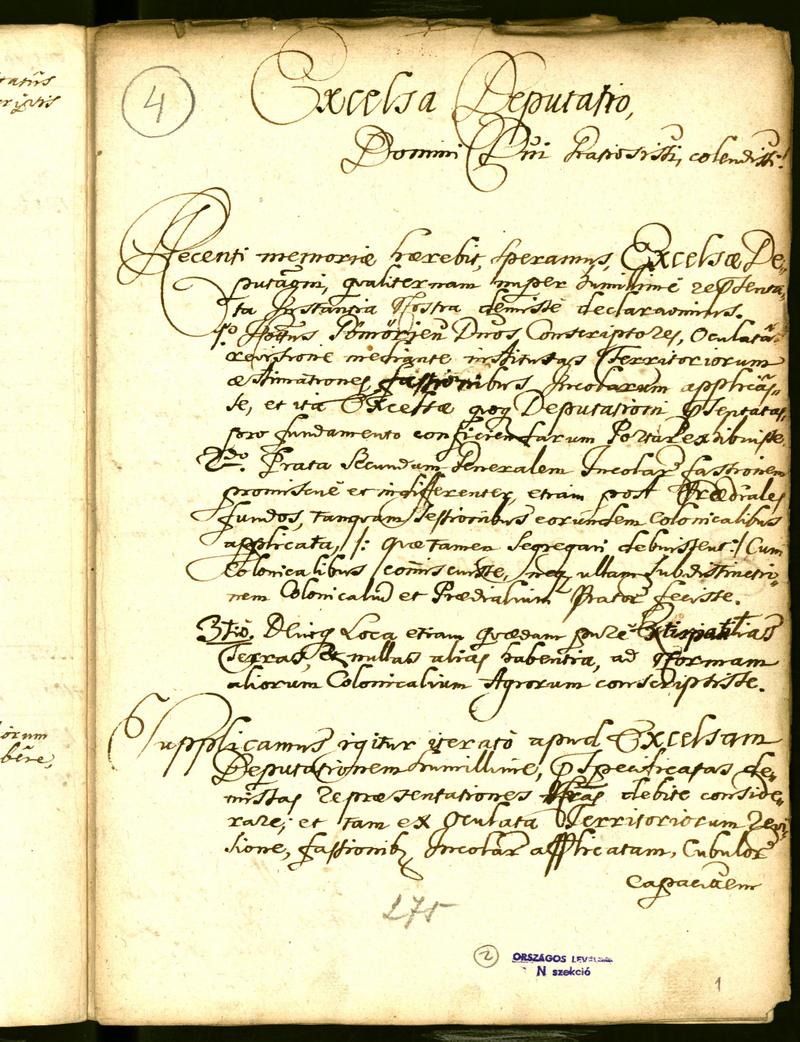 4
Excelsa Deputatio,
Domini Dni Gratiosissi, colendissi!
Recenti memoriæ hærebit, speramus, Excelsæ De„
putaoni, qualiternam nuper humillime repsenta„
ta Instantia Nostra demisse declaravimus.
1o Dnos Conscriptores, Oculatâ
revisione mediante institutas Territoriorum
æstimationes fassionibus Incolarum applicas„
se, et ita Excelsæ quoq Deputationi
pro fundamento conficiendarum Portar exhibuisse.
2do. Prata Secundum Generalem Incolar fassionem
promiscuè et indifferenter, etiam post Prædiales
fundos, tanquam Sessionibus eorundem Colonicalibus
applicata, /: quæ tamen Segregari debuissent :/ Cum
Colonicalibus comiscuisse, neq ullam Subdistinctio„
nem Colonicaliu et Prædialium Prator fecisse.
3tiò. Loca etiam quædam purè Extirpatitias
Terras, et nullas alias habentia, ad Normam
aliorum Colonicalium Agrorum conscripsisse.
Supplicamus igitur iteratò apud Excelsam
Deputationem humillime, Specificatas de„
missas repræsentationes Nras debite conside„
rare; et tam ex Oculata Territoriorum Revi„
sione, fassionibz Incolar applicatam, Cubulor
capacitatem
275
2
ORSZÁGOS LEVÉLTÁR
N szekció
1